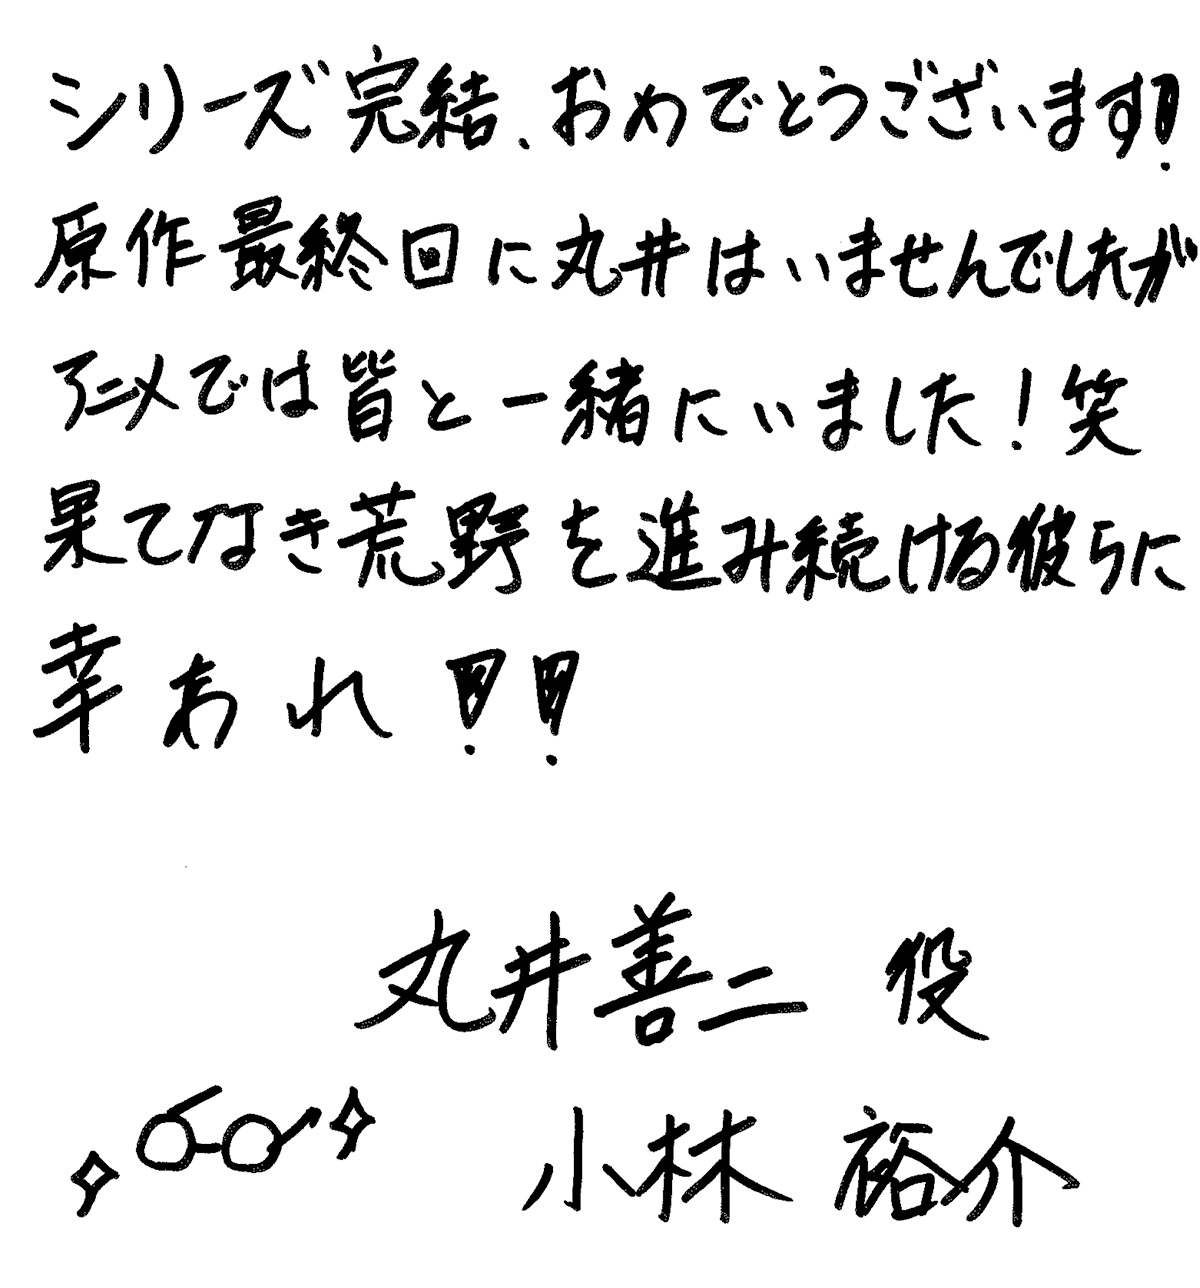 シリーズ完結、おめでとうございます!
原作最終回に丸井はいませんでしたが
アニメでは皆と一緒にいました!笑
果てなき荒野を進み続ける彼らに
幸あれ!!
丸井善二 役
小林 裕介